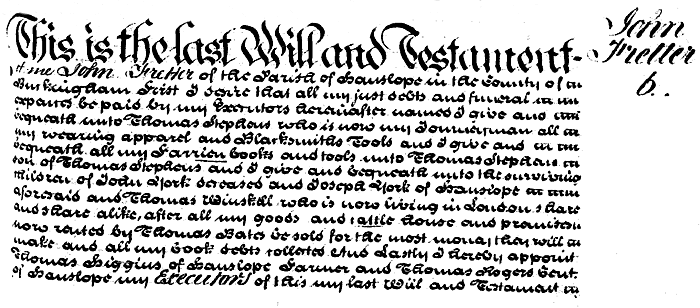 This is the last Will and Testament
John
Fretter
6.
of me John Fretter of the Parish of Hanslope in the County of
Buckingham First I desire that all my just debts and funeral
expences be paid by my Executors hereinafter named I give and
bequeath unto Thomas Stephens who is now my Journeyman all
my wearing apparel and Blacksmiths Tools and I give and
bequeath all my Farrien books and tools unto Thomas Stephens
son of Thomas Stephens and I give and bequeath unto the surviving
children of John York deceased and Joseph York of Hanslope
aforesaid and Thomas Winskell who is now living in London share
and share alike, after all my goods and cattle house and premises
now rented by Thomas Bates be sold for the most money they will
make and all my book debts collected And Lastly I hereby appoint
Thomas Higgins of Hanslope Farmer and Thomas Rogers Gent.
of Hanslope my Executors of this my last Will and Testament